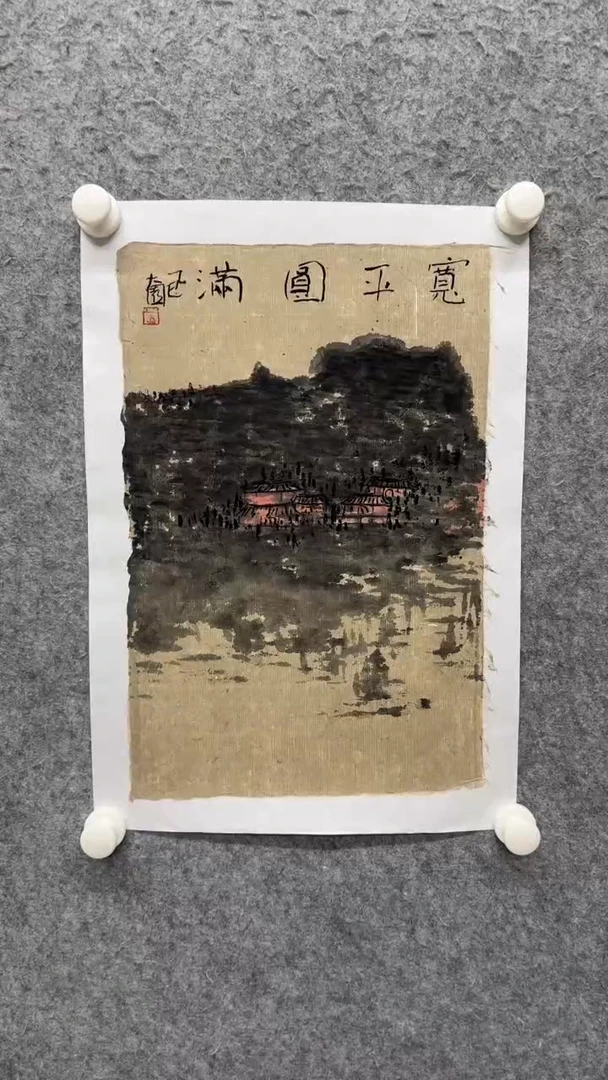 寬平圓滿